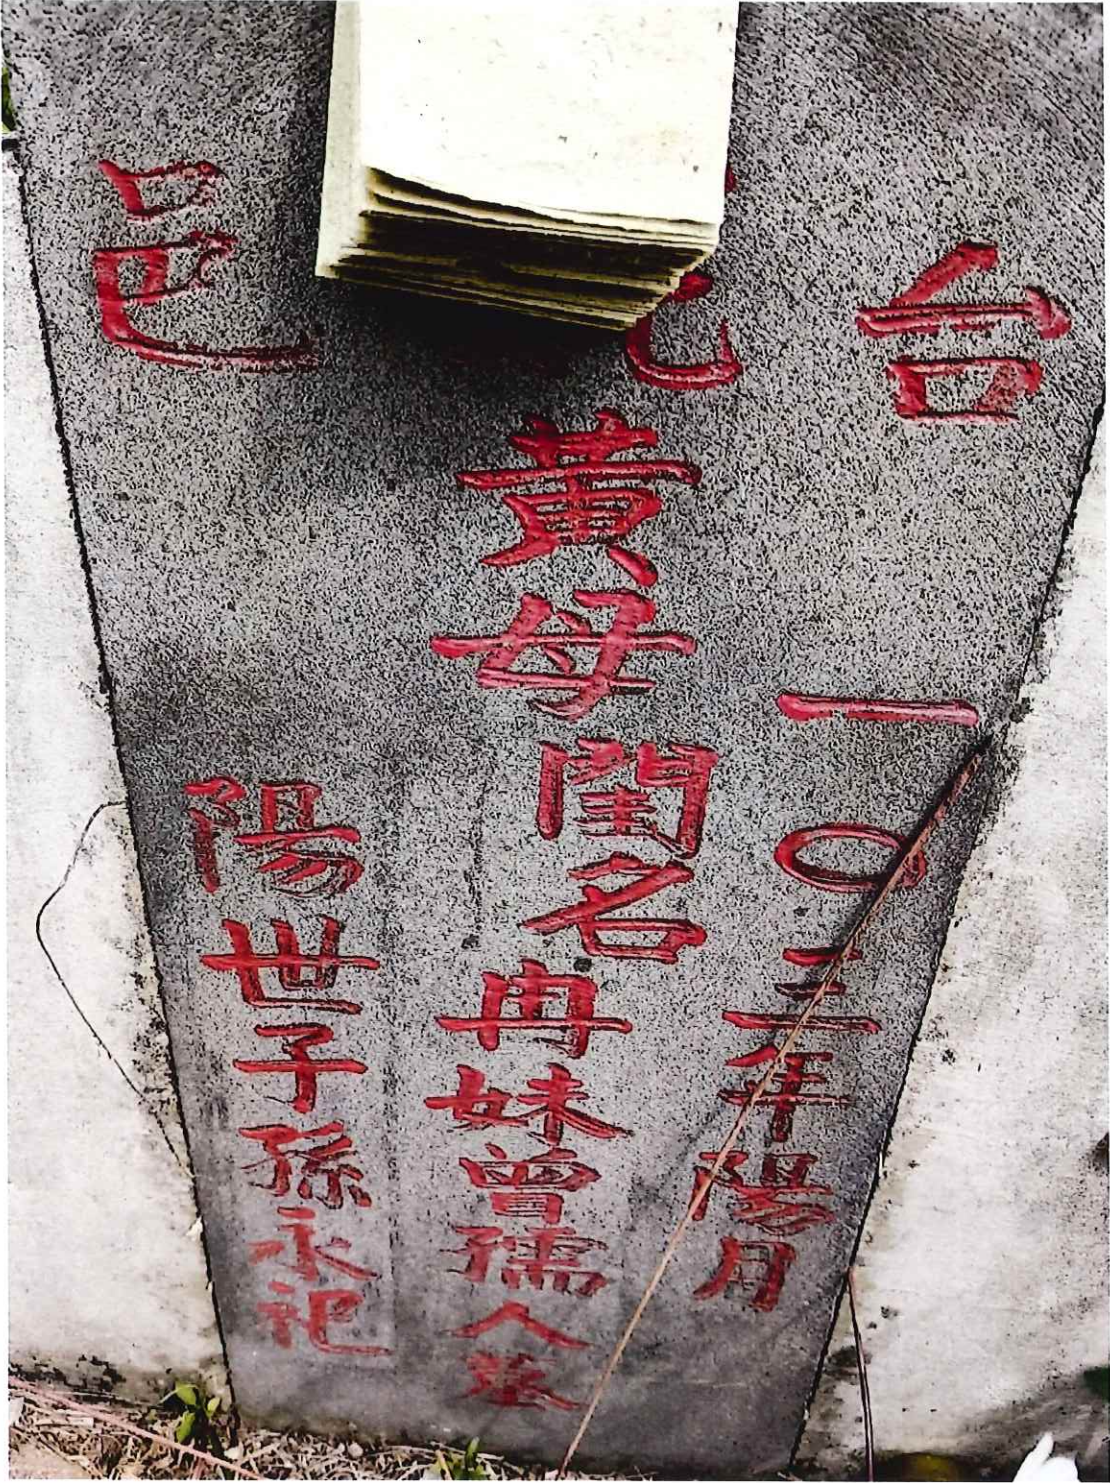 台邑
一〇三年陽月
黃母閨名冉妹曾孺人墓
陽世子孫永祀